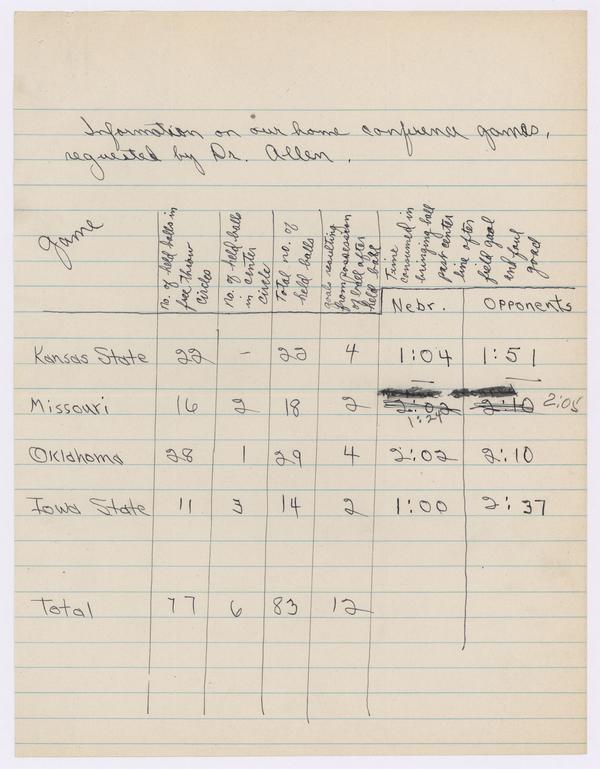 Information on our home conference games,
requested by Dr. Allen.
Game
No. of held balls in
free throw
circles
No. of held balls
in center
circle
Total no. of
held balls
goals resulting
from possession
of ball after
held ball
Time
consumed in
bringing ball
past center
line after
field goal
and foul
goal
Nebr. Opponents
Kansas State 22 - 22 4 1:04 1:51
Missouri 16 2 18 2 2:02 2:10 2:05
1:29
Oklahoma 28 1 29 4 2:02 2:10
Iowa State 11 3 14 2 1:00 2:37
Total 77 6 83 12